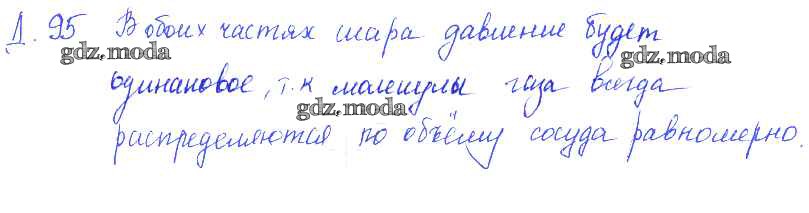 Д. 95 В обоих частях шара давление будет
gdz.moda gdz.moda
одинаковое, т.к молекулы газа всегда
gdz.moda
распределяются по объёму сосуда равномерно.